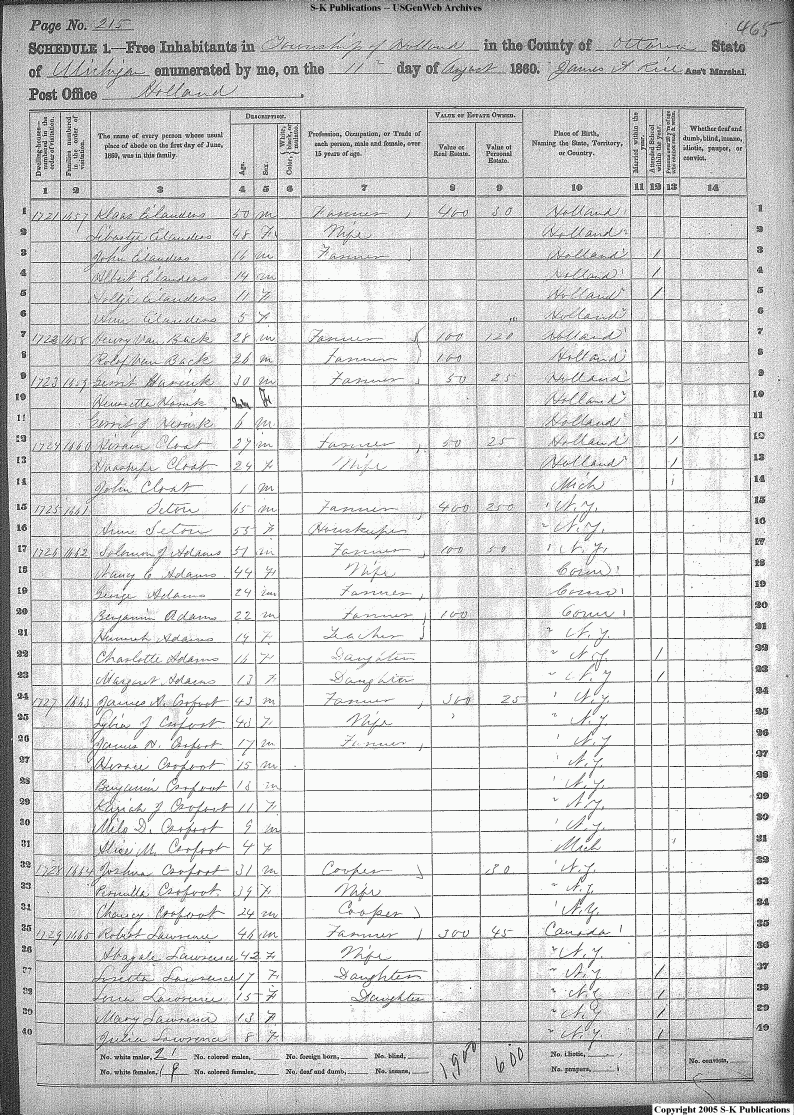 S-K Publications -- USGenWeb Archives
Page No. 215
465
SCHEDULE 1.—Free Inhabitants in Township of Holland in the County of Ottawa State
of Michigan enumerated by me, on the 11th day of August 1860. James A Ass't Marshal.
Post Office Holland
Dwelling-houses—numbered in the order of visitation.
Families numbered in the order of visitation.
The name of every person whose usual place of abode on the first day of June, 1860, was in this family.
DESCRIPTION.
Age.
Sex.
Color, { White, black, or mulatto.
Profession, Occupation, or Trade of each person, male and female, over 15 years of age.
VALUE OF ESTATE OWNED.
Value of Real Estate.
Value of Personal Estate.
Place of Birth, Naming the State, Territory, or Country.
Married within the year.
Attended School within the year.
Persons over 20 y'rs of age who cannot read & write.
Whether deaf and dumb, blind, insane, idiotic, pauper, or convict.
1 2 3 4 5 6 7 8 9 10 11 12 13 14
1 1721 1657 Klaas Eilanders 50 m Farmer 400 30 Holland 1
2 Eilanders 48 F Wife Holland 2
3 John Eilanders 16 m Farmer Holland 1 3
4 Albert Eilanders 14 m Holland 1 4
5 Eilanders 11 F Holland 1 5
6 Eilanders 5 F Holland 6
7 1722 1658 Henry Van Back 28 m Farmer 100 120 Holland 7
8 Rolef Van Back 26 m Farmer 100 Holland 8
9 1723 1659 Gerrit 30 m Farmer 50 25 Holland 9
10 Henriette F Holland 10
11 Gerrit J 6 m Holland 11
12 1724 1660 Cloat 27 m Farmer 50 25 Holland 1 12
13 Cloat 24 F Wife Holland 1 13
14 John Cloat 1 m Mich 14
15 1725 1661 Seton 65 m Farmer 400 250 N.Y. 15
16 Seton 55 F N.Y. 16
17 1726 1662 Solomon J Adams 51 m Farmer 100 50 N.Y. 17
18 Nancy C Adams 44 F Wife Conn 18
19 George Adams 24 m Farmer Conn 19
20 Benjamin Adams 22 m Farmer 100 Conn 20
21 Hannah Adams 19 F Teacher " N.Y. 21
22 Charlotte Adams 16 F Daughter " N.Y. 1 22
23 Margaret Adams 13 F Daughter " N.Y 1 23
24 1727 1663 James A. Crofoot 43 m Farmer 300 25 N.Y. 24
25 Lydia J Crofoot 43 F Wife " N.Y. 25
26 James H. Crofoot 17 m Farmer N.Y 26
27 Horace Crofoot 15 m N.Y. 27
28 Benjamin Crofoot 13 m N.Y. 28
29 J Crofoot 11 F N.Y. 29
30 Milo D. Crofoot 9 m N.Y. 30
31 Alice M. Crofoot 4 F Mich 31
32 1728 1664 Joshua Crofoot 31 m Cooper 30 N.Y. 32
33 Crofoot 39 F Wife " N.Y. 33
34 Chancy Crofoot 24 m Cooper N.Y. 34
35 1729 1665 Robert Lawrence 46 m Farmer 300 45 Canada 35
36 Abagale Lawrence 42 F Wife " N.Y. 36
37 Loretta Lawrence 17 F Daughter " N.Y. 1 37
38 Lawrence 15 F Daughter " N.Y. 1 38
39 Mary Lawrence 13 F " N.Y. 1 39
40 Julia Lawrence 8 F " N.Y. 1 40
No. white males, 21 No. colored males, No. foreign born, No. blind, 1,900 600 No. idiotic,
No. white females, 19 No. colored females, No. deaf and dumb, No. insane, No. paupers, No. convicts,
Copyright 2005 S-K Publications